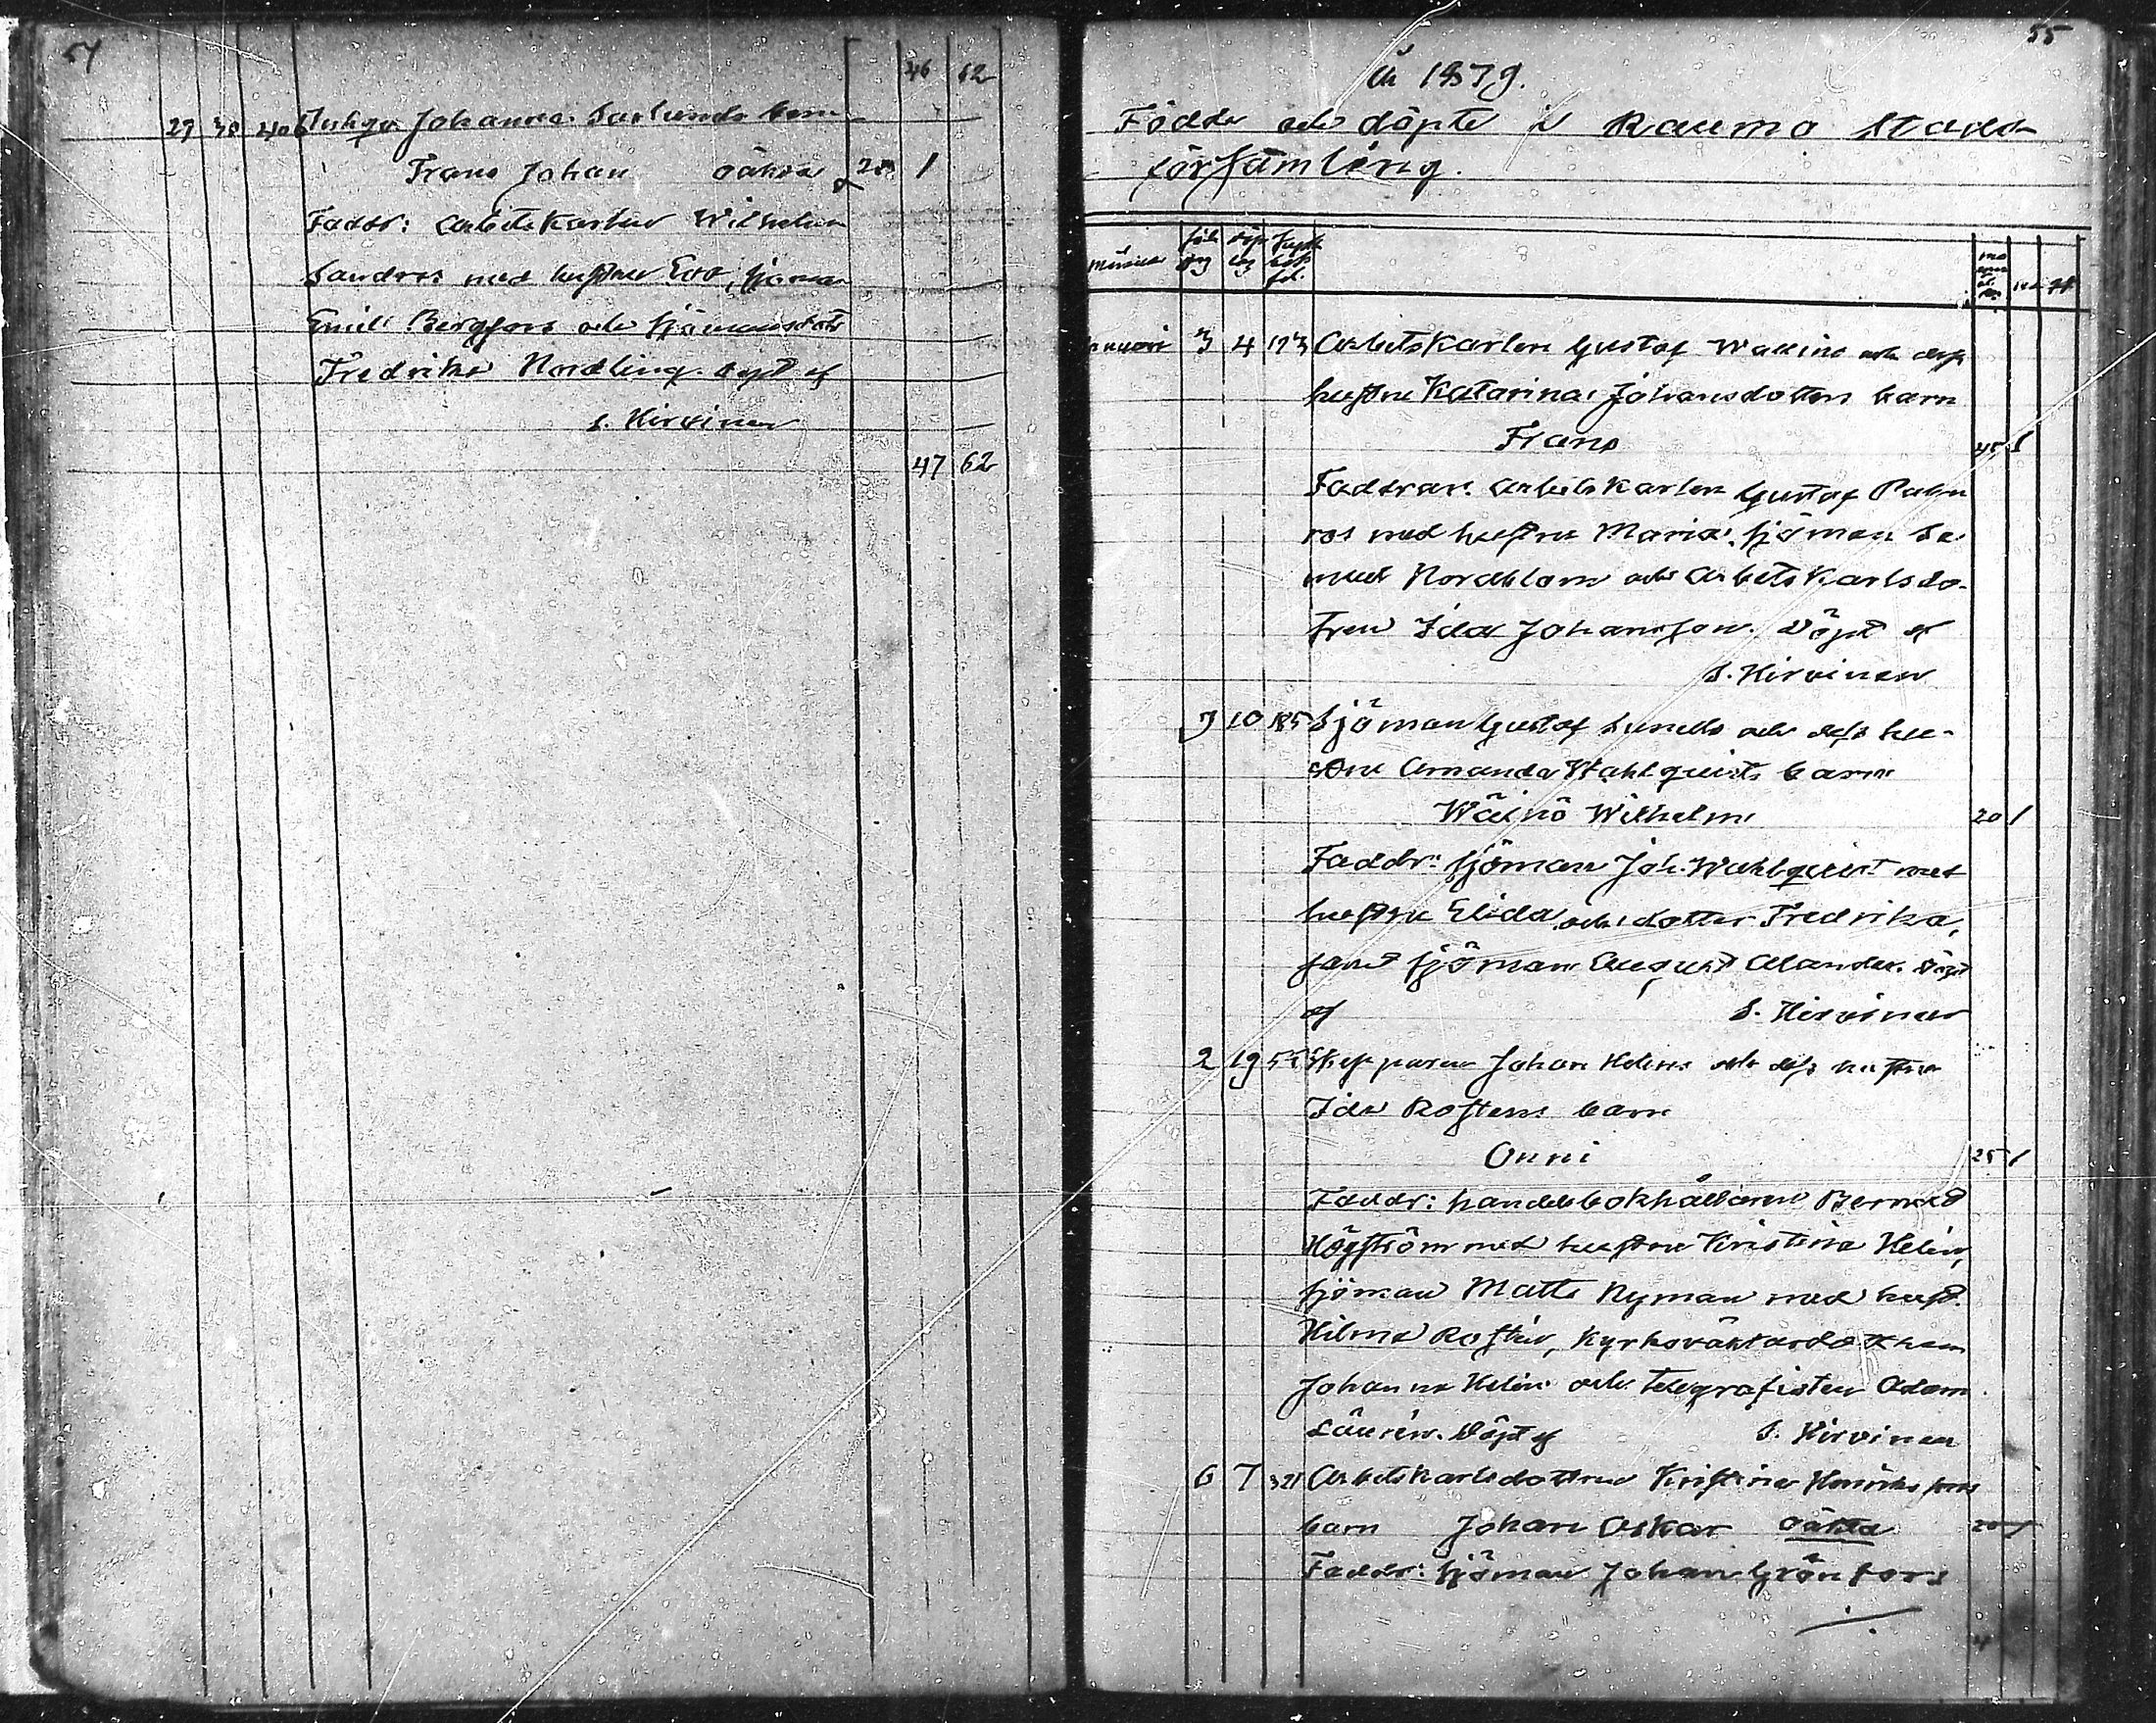 54
46 62
29 30 406 Inhys Johanna Sarlunds barn
Frans Johan oäkta 20 1
Faddr: arbetskarlen Wilhelm
Sandros med hustru Eva, sjöman
Emil Bergfors och sjömansdottr
Fredrika Nordling. döpt af
S. Hirvinen
47 62
55
År 1879.
Födde och döpte i Raumo Stads
församling.
Månad föd. dag döp. dag
januari 3 4 193 Arbetskarlen Gustaf Wallins och dess
hustru Katarina Johansdotters barn
Frans 45 1
Faddrar: arbetskarlen Gustaf Palm
ros med hustru Maria, sjöman Sa
muel Nordblom och arbetskarlsdo-
tren Ida Johansson. Döpt af
S. Hirvinen
9 10 185 Sjöman Gustaf Lunells och dess hu-
stru Amanda Wahlquists barn
Wäinö Wilhelm 20 1
Faddr: sjöman Joh. Wahlquist med
hustru Elida och dotter Fredrika,
samt sjöman August Alander. Döpt
af S. Hirvinen
2 19 55 Skepparen Johan Helins och dess hustru
Ida Rostens barn
Onni 25 1
Faddr: handelsbokhållaren Bernard
Högström med hustru Kristina Helin,
sjöman Matts Nyman med hust.
Hilma Rostén, Kyrkoväktardottren
Johanna Helin och telegrafisten Adam
Laurén. Döpt af S. Hirvinen
6 7 321 Arbetskarlsdottren Kristina Henrikssons
barn Johan Oskar oäkta 20 1
Faddr: sjöman Johan Grönfors
4